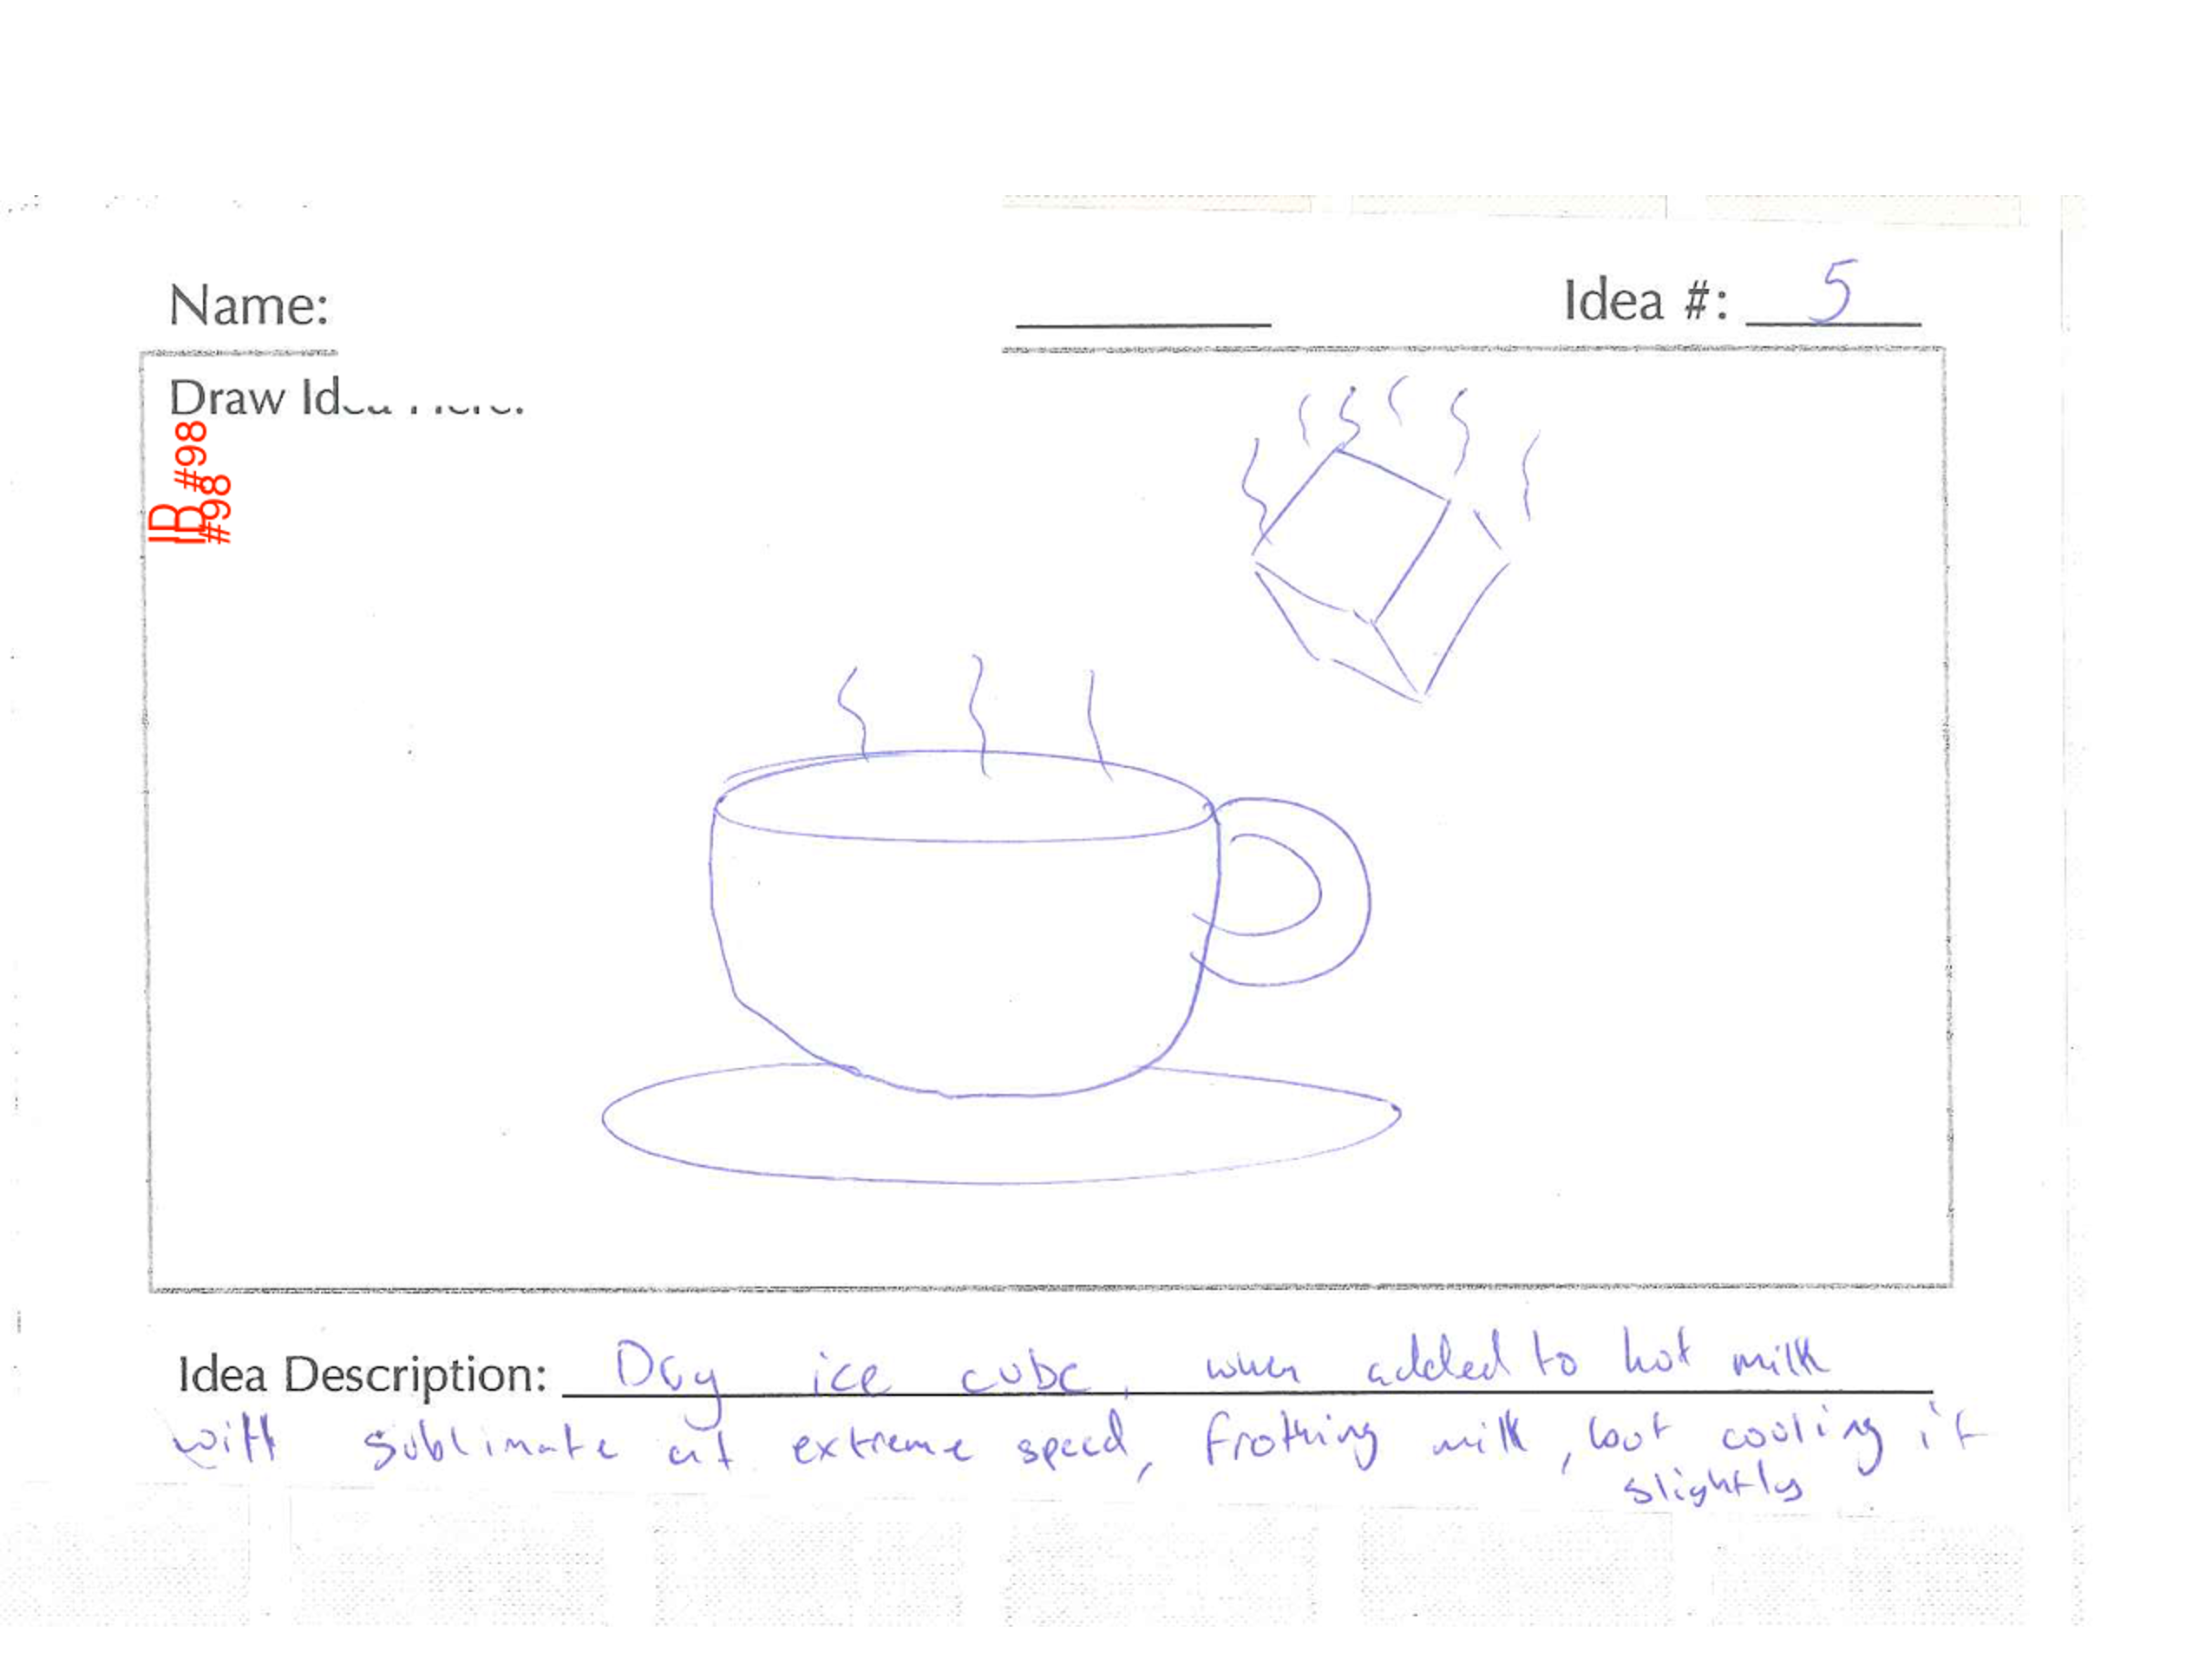 Name: Idea #: 5
Draw Idea Here:
ID #98
ID #98
Idea Description: Dry ice cube, when added to hot milk
will sublimate at extreme speed, frothing milk, but cooling it
slightly